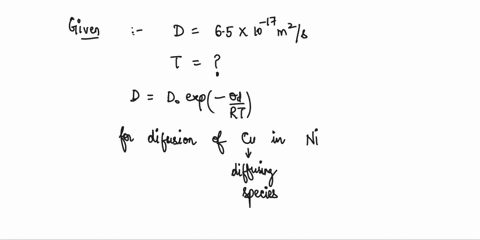 Given :- D = 6.5 × 10⁻¹⁷ m²/s
T = ?
D = D₀ exp(-Qd/RT)
for difusion of Cu in Ni
↓
diffusing
species